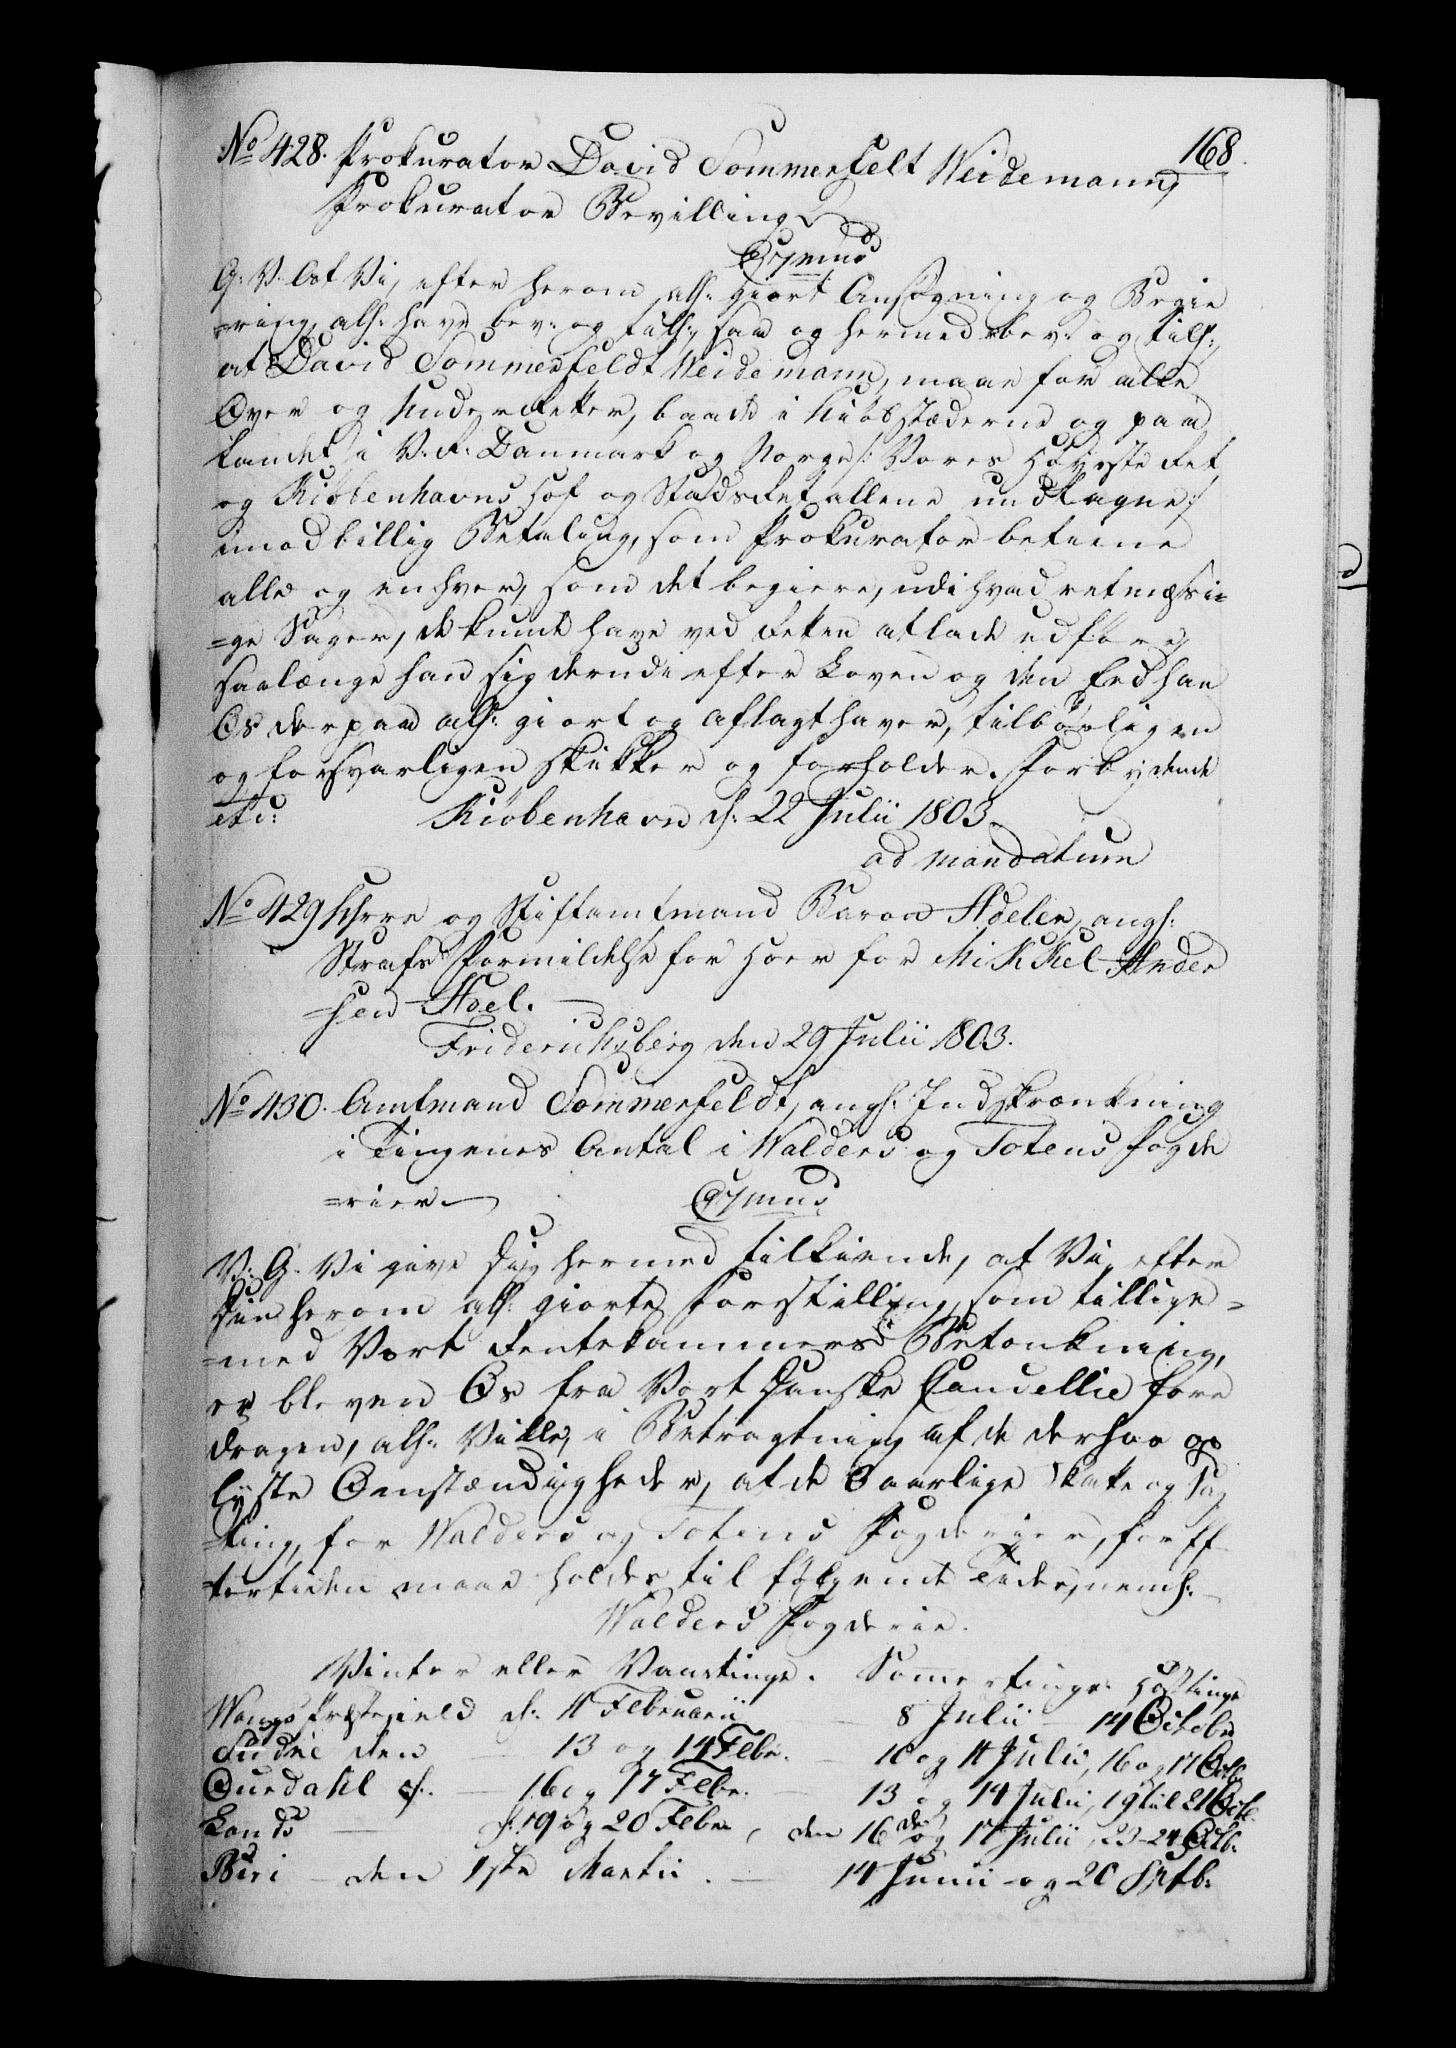 168.
No 428. Prokurator David Sommerfelt Weidemann,
Prokurator Bevilling
G: V: At Vi, efter herom alls: giort Ansøgning og Begie
=ring, alls: have bev: og tills:, saa og hermed bev: og tills:,
at David Sommerfeldt Weidemann, maae for alle
Over og Under Retter, baade i Kiøbstæderne og paa
Landet i V. R. Danmark og Norge /: Vores Høieste Ret
og Kiøbenhavns Hof og Stads Ret allene undtagne :/
imod billig Betaling, som Prokurator betiene
alle og enhver, som det begiere, udi hvad retmæssi=
=ge Sager, de kunde have ved Retten at lade udføre,
saalænge han sig derudi efter Loven og den Eed han
Os derpaa alls: giort og aflagt haver, tilbørligen
og forsvarligen skikker og forholder. Forbydende
etc: Kiøbenhavn d: 22 Julii 1803.
ad mandatum
No 429 Hrre og Stiftamtmand Baron Adeler, angl:
Strafs Formildelse for Hoer for Mikkel Ander
=sen Hoel.
Friderichsberg den 29 Julii 1803.
No 430. Amtmand Sommerfeldt, angl: Indskrænkning
i Tingenes Antal i Walders og Totens Fogde
=rier
V: G. Vi give Dig hermed tilkiende, at Vi, efter
Din herom alls: giorte Forestilling, som tillige=
=med Vort Rentekammers Betænkning,
er bleven Os fra Vort Danske Cancellie fore
dragen, alls: Ville, i Betragtning af de derhos op
lyste Omstændigheder, at de Aarlige Skatte og Sag
=ting, for Walders og Totens Fogderier, for Ef
=tertiden maae holdes til følgende Tider, neml:
Walders Fogderie.
Vinter eller Vaartinge. Sommertinge. Høstinge
Wangs Præstegield d: 11 Februarii — 8 Julii — 14 Octobr
Slidre den — 13 og 14 Febr. — 10 og 11 Julii, 16 og 17 Octb
Ourdahl d: — 16 og 17 Febr. — 13 og 14 Julii, 19 til 21 Octb.
Lands — d: 19 og 20 Febr, den 16de og 17 Julii, 23-24 Octb:
Biri — den 1ste Martii. — 14 Junii og 20 Septb: